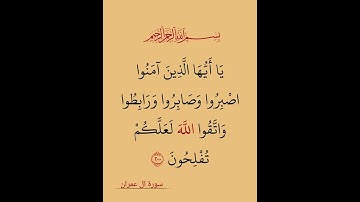 بسم الله الرحمن الرحيم
يَا أَيُّهَا الَّذِينَ آمَنُوا
اصْبِرُوا وَصَابِرُوا وَرَابِطُوا
وَاتَّقُوا اللَّهَ لَعَلَّكُمْ
تُفْلِحُونَ ٢٠٠
سورة ال عمران